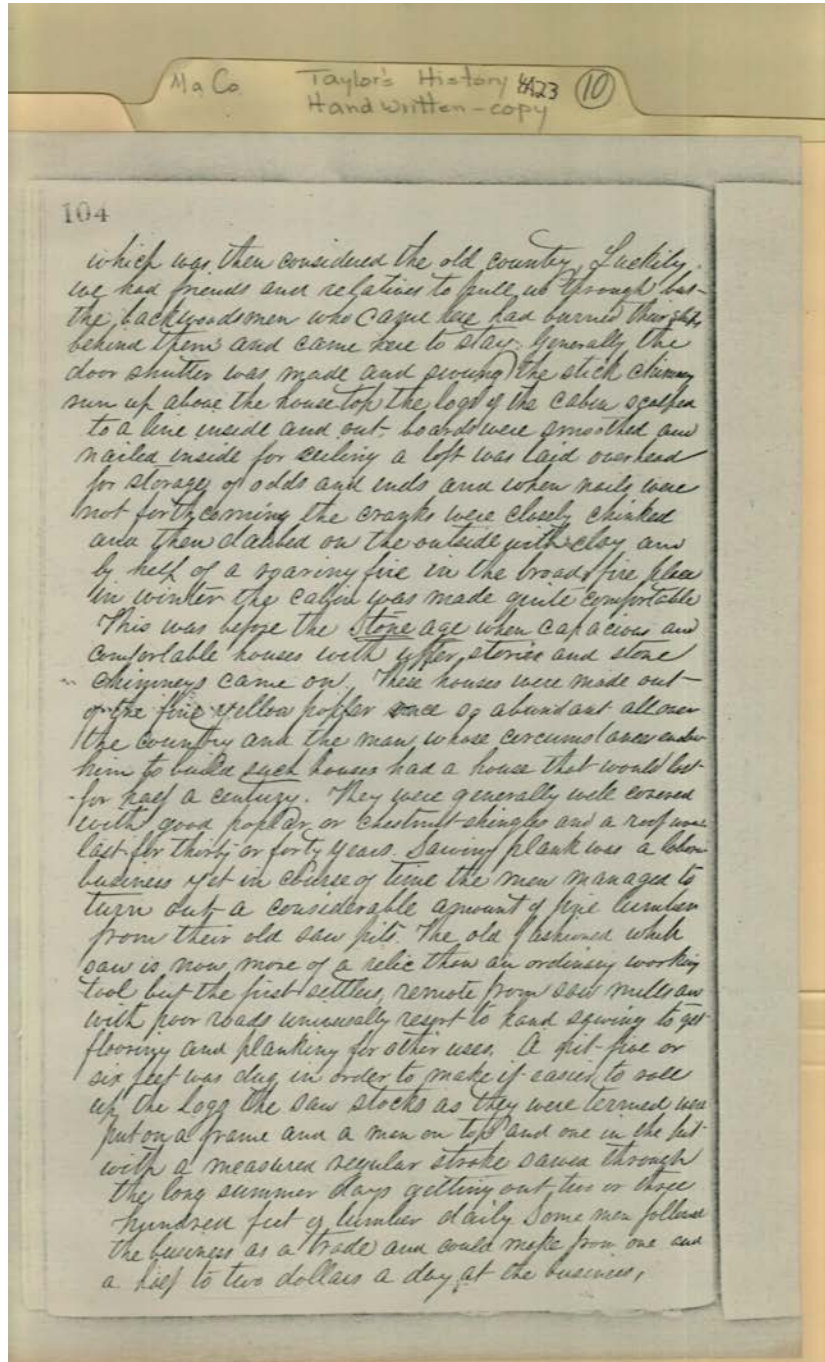 Ma Co Taylor's History 4A23 10
Handwritten-copy
104
which was then considered the old country, Luckily
we had friends and relatives to pull us through but
the backwoodsmen who came here had burned their ships
behind them and came here to stay. Generally the
door shutter was made and swung, the stick chimney
run up above the house top the logs of the cabin scalped
to a line inside and out, boards were smoothed and
nailed inside for ceiling a loft was laid overhead
for storage of odds and ends and when nails were
not forthcoming the cracks were closely chinked
and then daubed on the outside with clay and
by help of a roaring fire in the broad fire place
in winter the cabin was made quite comfortable
This was before the Stone age when capacious and
comfortable houses with upper stories and stone
chimneys came on. These houses were made out
of the fine yellow poplar once so abundant all over
the country and the man whose circumstances
him to build such houses had a house that would last
for half a century. They were generally well covered
with good poplar or chestnut shingles and a roof would
last for thirty or forty years. Sawing plank was a
business yet in course of time the men managed to
turn out a considerable amount of fine lumber
from their old saw pits. The old fashioned whip
saw is now more of a relic than an ordinary working
tool but the first settlers, remote from saw mills and
with poor roads universally resort to hand sawing to get
flooring and planking for other uses. A pit five or
six feet was dug in order to make it easier to roll
up the Logg the saw stocks as they were termed were
put on a frame and a man on top and one in the pit
with a measured regular stroke sawed through
the long summer days getting out two or three
hundred feet of lumber daily. Some men followed
the business as a trade and could make from one and
a half to two dollars a day at the business,